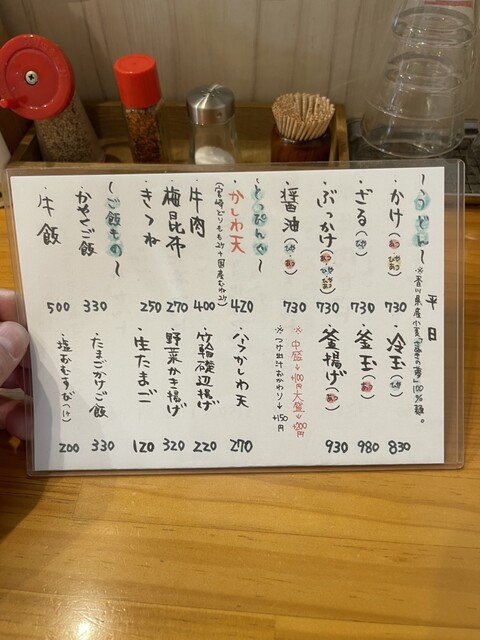 平日
〜うどん〜
※香川県産小麦「さぬきの夢」100%麺。
・かけ(あつ ひや ひやあつ) 730
・ざる(ひや) 730
・ぶっかけ(あつ ひや ひやあつ) 730
・醤油(ひや・あつ) 730
・冷玉(ひや) 830
・釜玉(あつ) 980
・釜揚げ(あつ) 930
※中盛→+100円 大盛→+200円
※つけ出汁おかわり→+150円
〜とっぴんぐ〜
・かしわ天 420
(宮崎どりもも2ヶ+国産むね2ヶ)
・牛肉 400
・梅昆布 270
・きつね 250
・ハーフかしわ天 270
・竹輪磯辺揚げ 220
・野菜かき揚げ 320
・生たまご 120
〜ご飯もの〜
・かやくご飯 330
・牛飯 500
・たまごかけご飯 330
・塩おむすび(1ヶ) 200